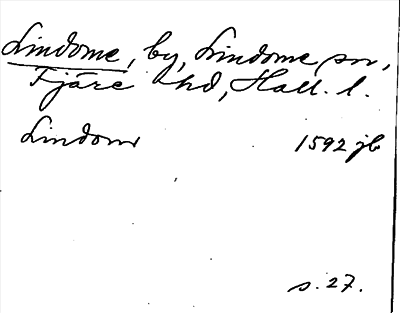 Lindome, by, Lindome sn,
Fjäre hd, Hall. l.
Lindom 1592 jb
s. 27.